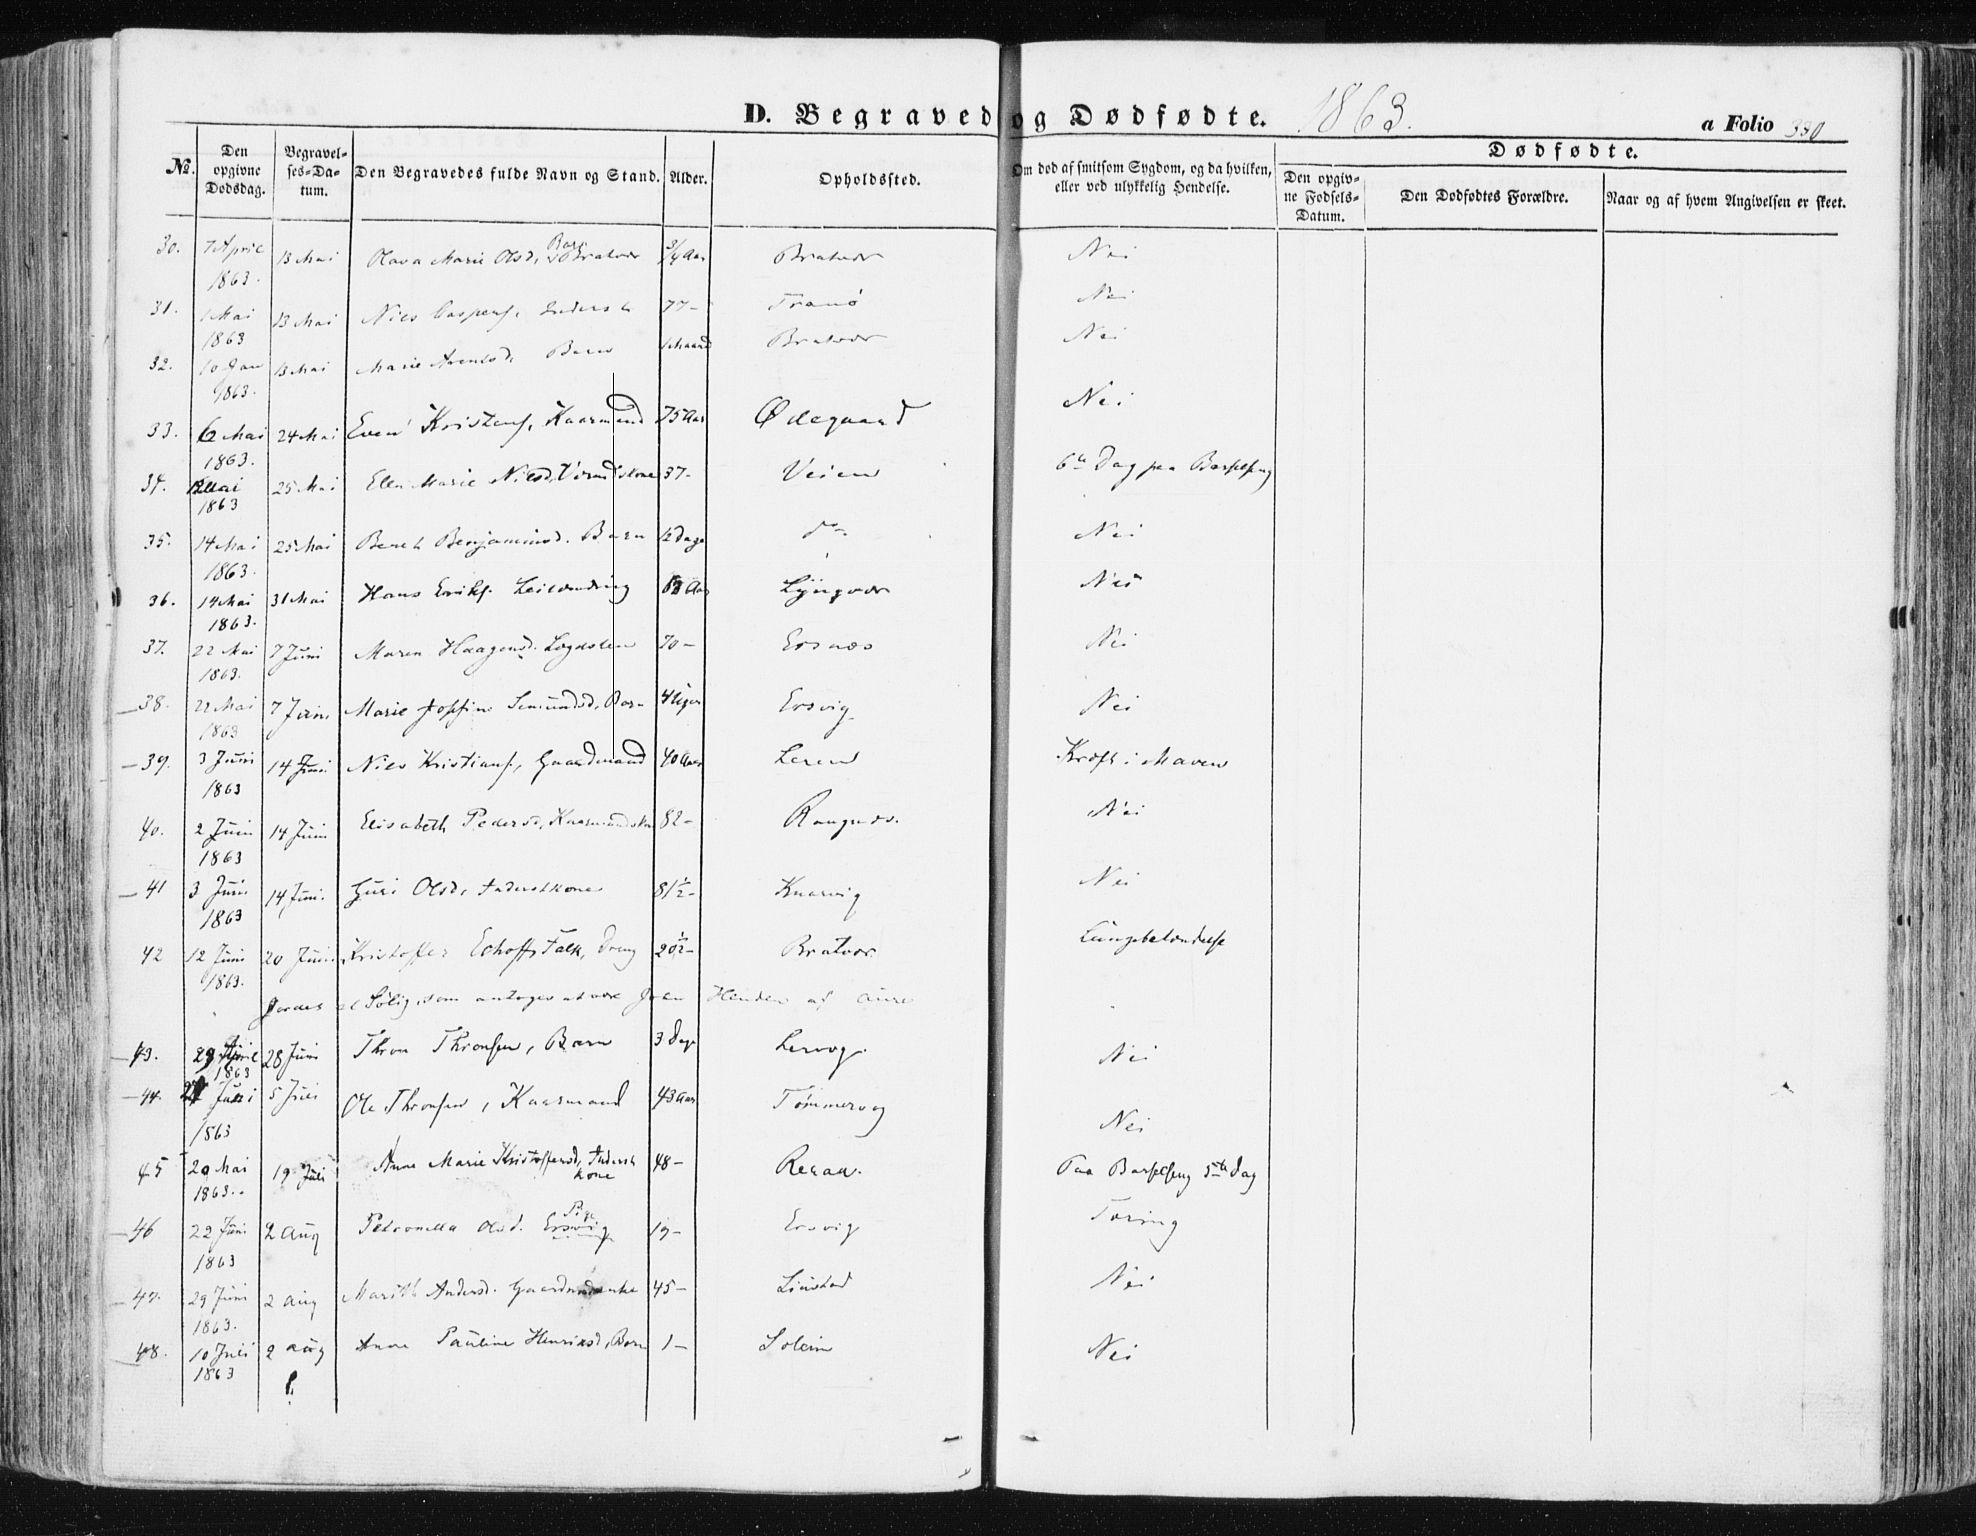 D. Begravede og Dødfødte. 1863. a Folio 330
No. | Den opgivne Dødsdag. | Begravelses-Datum. | Den Begravedes fulde Navn og Stand. | Alder. | Opholdssted. | Om død af smitsom Sygdom, og da hvilken, eller ved ulykkelig Hendelse. | Dødfødte. | Den opgivne Fødsels-Datum. | Den Dødfødtes Forældre. | Naar og af hvem Angivelsen er skeet.
30. 7 April 1863. 13 Mai Olava Marie Olsd, Barn Bratvær 3/4 Aar Bratvær Nei
31. 1 Mai 1863 13 Mai Nils Caspers. Inderst 77 - Tranø Nei
32. 10 Jan 1863. 13 Mai Marie Arentsd. Barn 1 Maaned Bratvær Nei
33. 6 Mai 1863. 24 Mai Even Kristens, Kaarmand 75 Aar Ødegaard Nei
34. 12 Mai 1863 25 Mai Ellen Marie Nilsd, kone 37 - Veien 6te Dag paa Barselseng
35. 14 Mai 1863. 25 Mai Beret Benjaminsd. Barn 12 Dage do Nei
36. 14 Mai 1863. 31 Mai Hans Eriks. Leilending Aar Lyngvær Nei
37. 22 Mai 1863. 7 Juni Maren Haagensd. Lægdslem 70 - Ersnæs Nei
38. 22 Mai 1863 7 Juni Marie Josefine Simundsd, Barn 4 Uger Ersvig Nei
39. 3 Juni 1863 14 Juni Nils Kristians, Gaardmand 40 Aar Leren Kræft i Maven
40. 2 Juni 1863 14 Juni Elisabeth Pedersd, Kaarmandskone 82 - Rangnæs. Nei
41 3 Juni 1863 14 Juni. Guri Olsd, Inderstkone 81 1/2 - Knarvig Nei
42 12 Juni 1863. 20 Juni Kristoffer Echoffs Falk, Dreng 20 1/2 - Bratvær Lungebetændelse
Jordet et Søliig, som antoges at være Joen Henden af Aure
43. 29 April 1863 28 Juni Thron Thronsen, Barn 3 Dage Lervog. Nei
44. 27 Juni 1863 5 Juli Ole Thronsen, Kaarmand 43 Aar Tømmervog Nei
45 20 Mai 1863. 19 Juli Anne Marie Kristoffersd, Inderstkone 48 - Resaa. Paa Barselseng 5te Dag
46 22 Juni 1863 2 Aug Petronella Olsd. Ersvig Pige 19 - Ersvig Tæring
47. 29 Juni 1863. 2 Aug Marith Andersd. Gaardmandsenke 45 - Linstad Nei
48. 10 Juli 1863 2 Aug Anne Pauline Henriksd, Barn 1 - Solem Nei